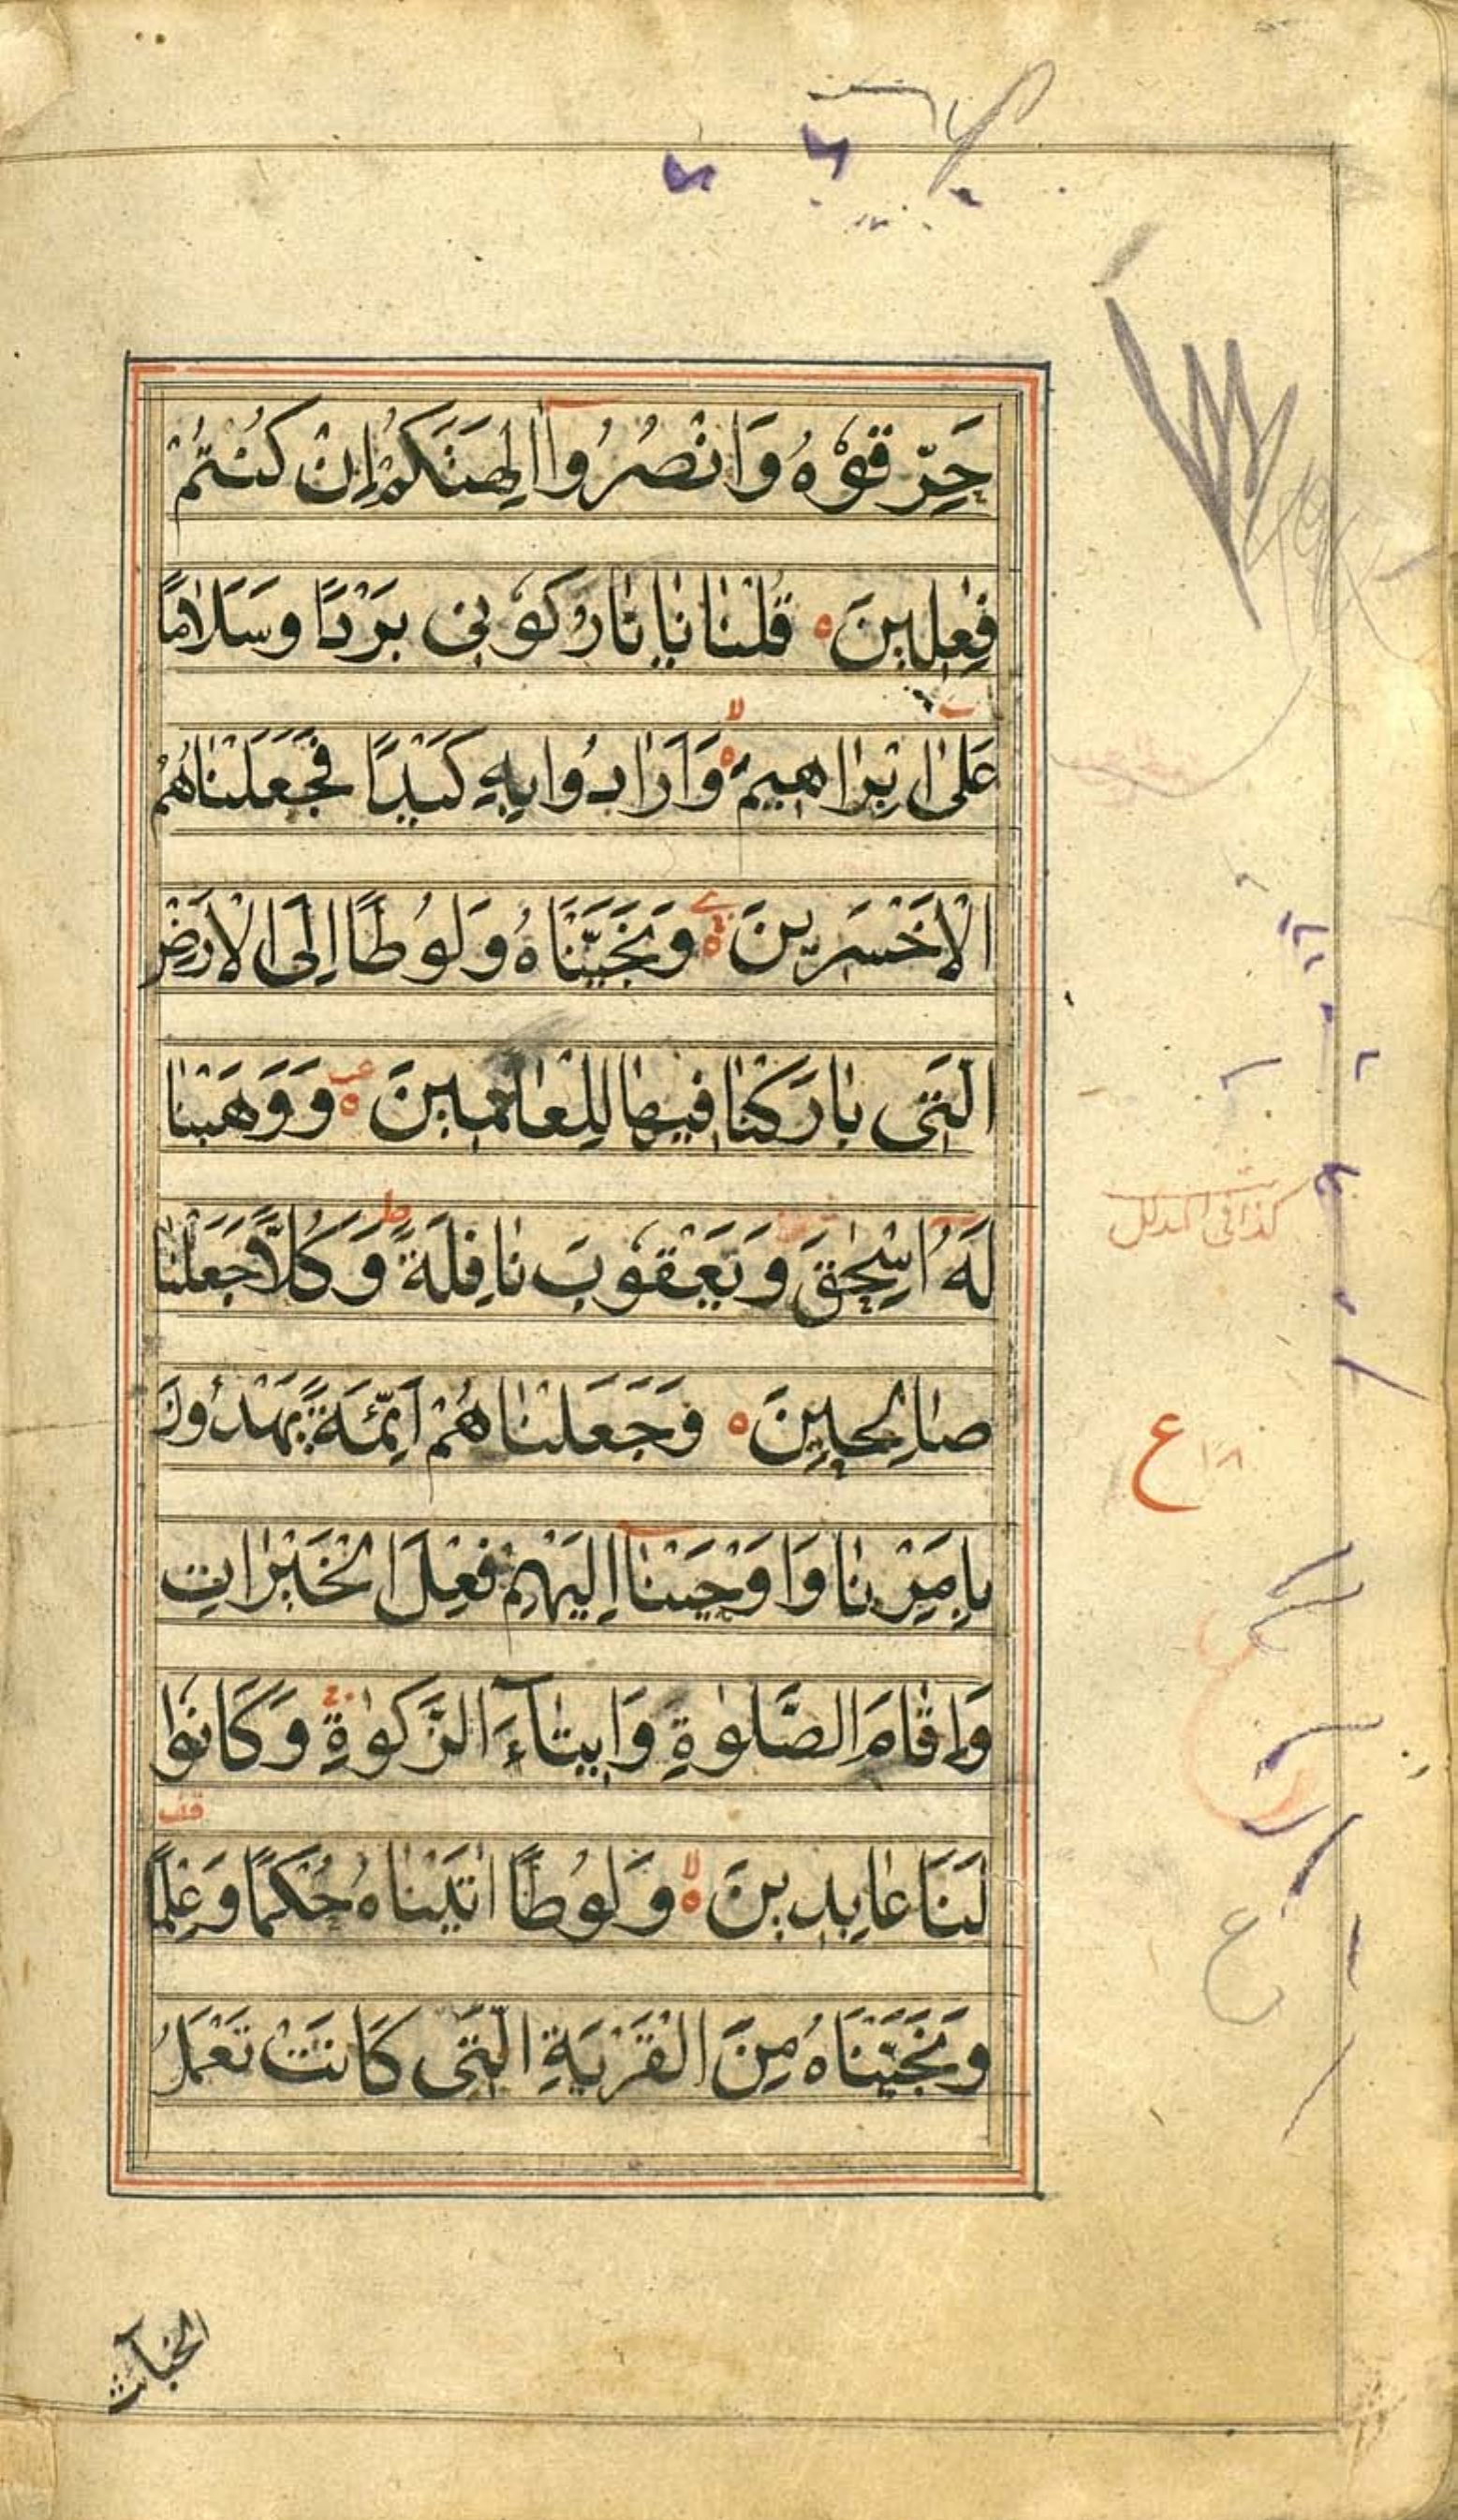 حَرِّقُوْهُ وَانْصُرُوْا اٰلِهَتَكُمْ اِنْ كُنْتُمْ
فٰعِلِيْنَ ۝ قُلْنَا يَا نَارُ كُوْنِى بَرْدًا وَسَلَامًا
عَلٰى اِبْرَاهِيْمَ ۝ لا وَاَرَادُوْا بِهٖ كَيْدًا فَجَعَلْنَاهُمُ
الْاَخْسَرِيْنَ ۝ وَنَجَّيْنَاهُ وَلُوْطًا اِلَى الْاَرْضِ
الَّتِى بَارَكْنَا فِيْهَا لِلْعَالَمِيْنَ ۝ وَوَهَبْنَا
لَهُ اِسْحٰقَ وَيَعْقُوْبَ نَافِلَةً ط وَكُلًّا جَعَلْنَا
صَالِحِيْنَ ۝ وَجَعَلْنَاهُمْ اَئِمَّةً يَهْدُوْنَ
بِاَمْرِنَا وَاَوْحَيْنَا اِلَيْهِمْ فِعْلَ الْخَيْرَاتِ
وَاِقَامَ الصَّلٰوةِ وَاِيْتَآءَ الزَّكٰوةِ وَكَانُوْا
لَنَا عَابِدِيْنَ ۝ لا وَلُوْطًا اٰتَيْنَاهُ حُكْمًا وَعِلْمًا
وَنَجَّيْنَاهُ مِنَ الْقَرْيَةِ الَّتِى كَانَتْ تَعْمَلُ
قف
ع
ع
الخبآئث